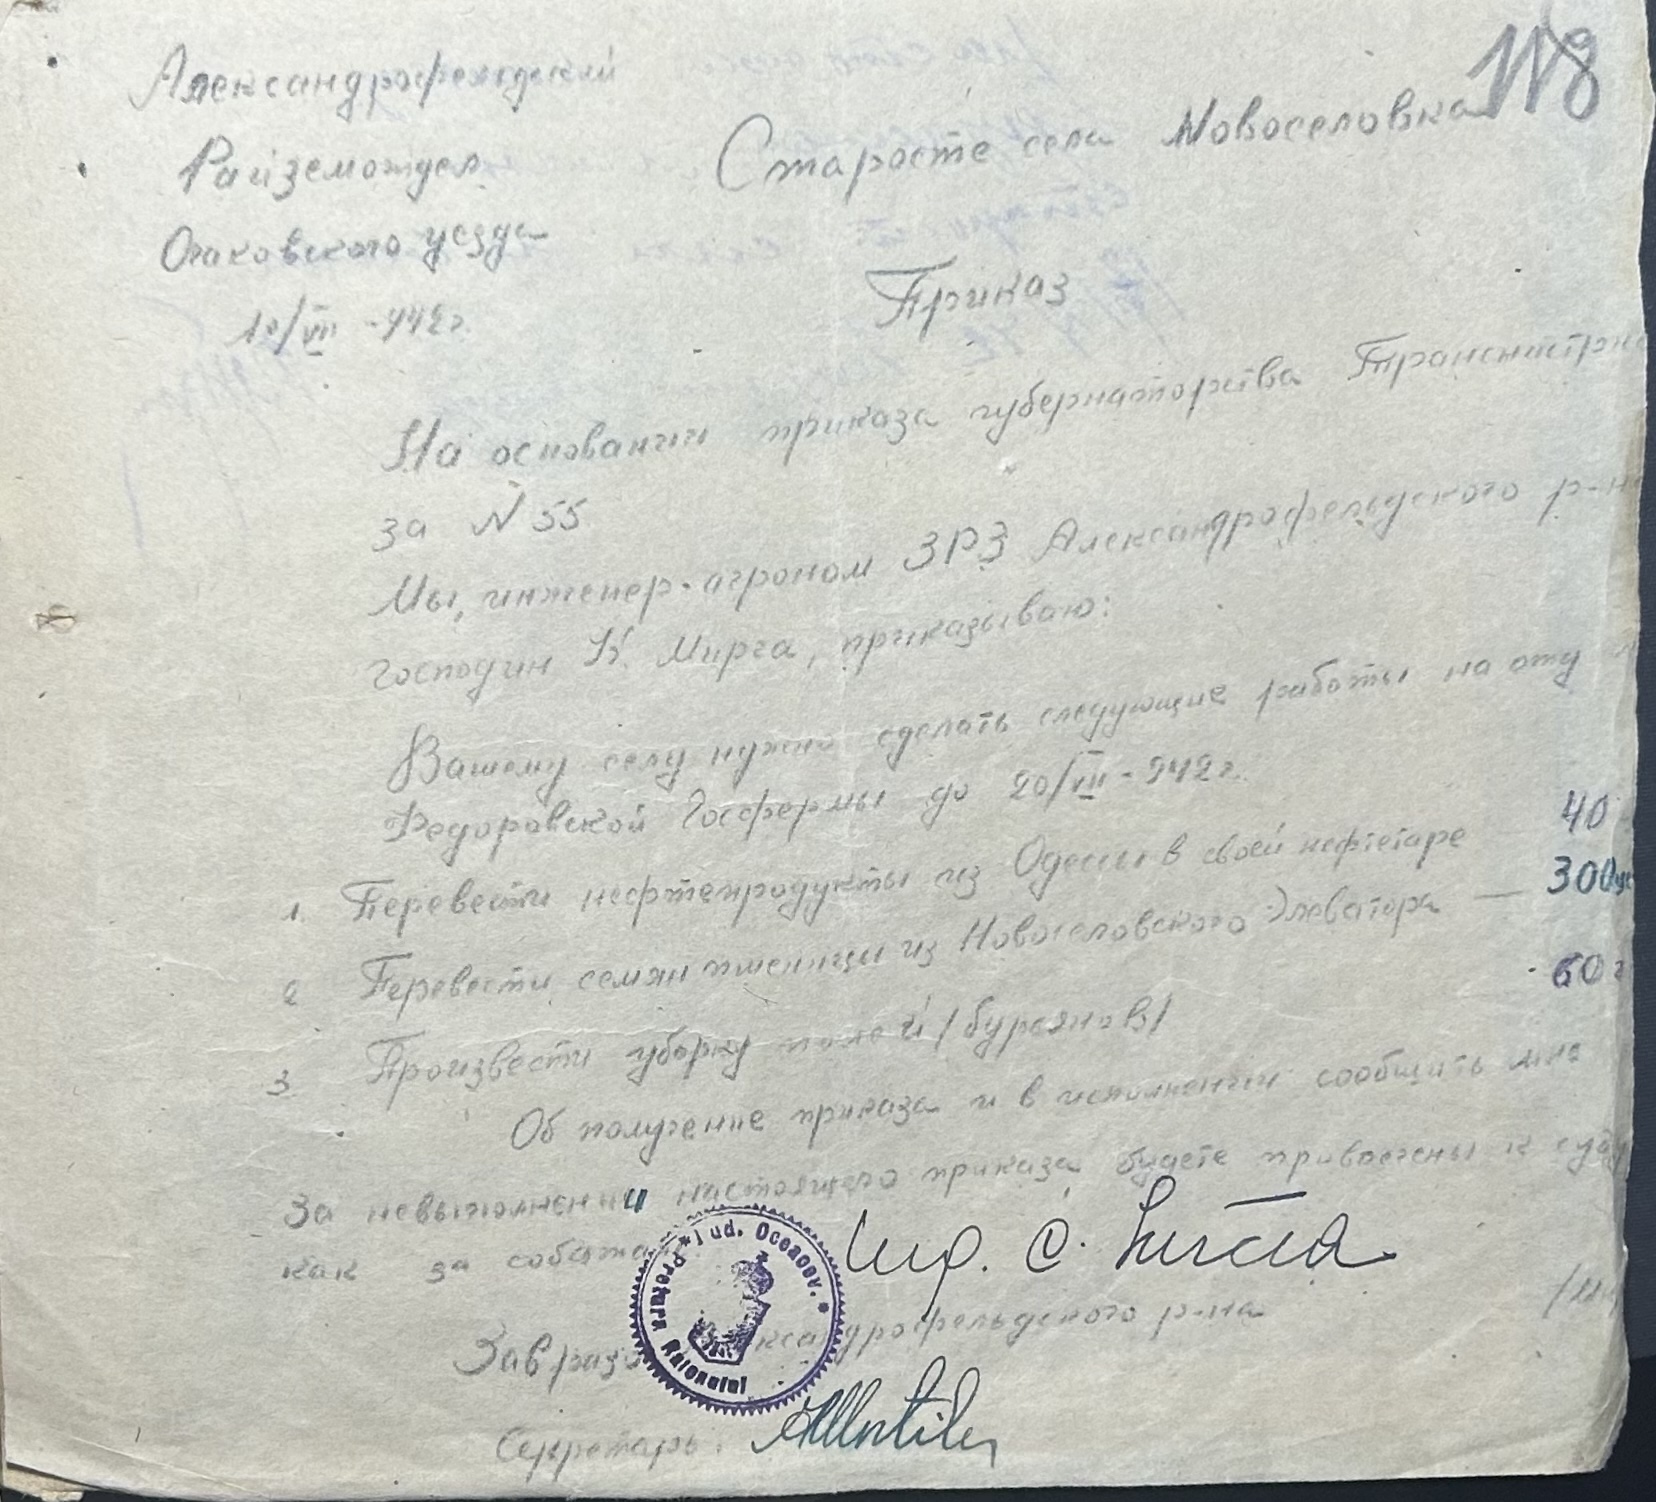 118
Александрофельдский
Райземотдел
Очаковского уезда
10/VII - 942 г.
Старосте села Новоселовка
Приказ
На основании приказа губернаторства Транснистри
за N 55
Мы, инженер-агроном ЗРЗ Александрофельдского р-н
господин К. Мирча, приказываю:
Вашему селу нужно сделать следующие работы на
Федоровской Госфермы до 20/VII - 942 г.
1. Перевести нефтепродукты из Одессы в своей нефтетаре 40
2 Перевести семян пшеницы из Новоселовского Элеватора — 300
3 Произвести уборку полей /бурянов/ 60 г
Об получение приказа и в исполнении сообщить мне
За невыполнении настоящего приказа будете привлечены к суду
как за
* Jud. Oceacov. * Pretura Raionului
Зав рай ксандрофельдского р-на
Секретарь: